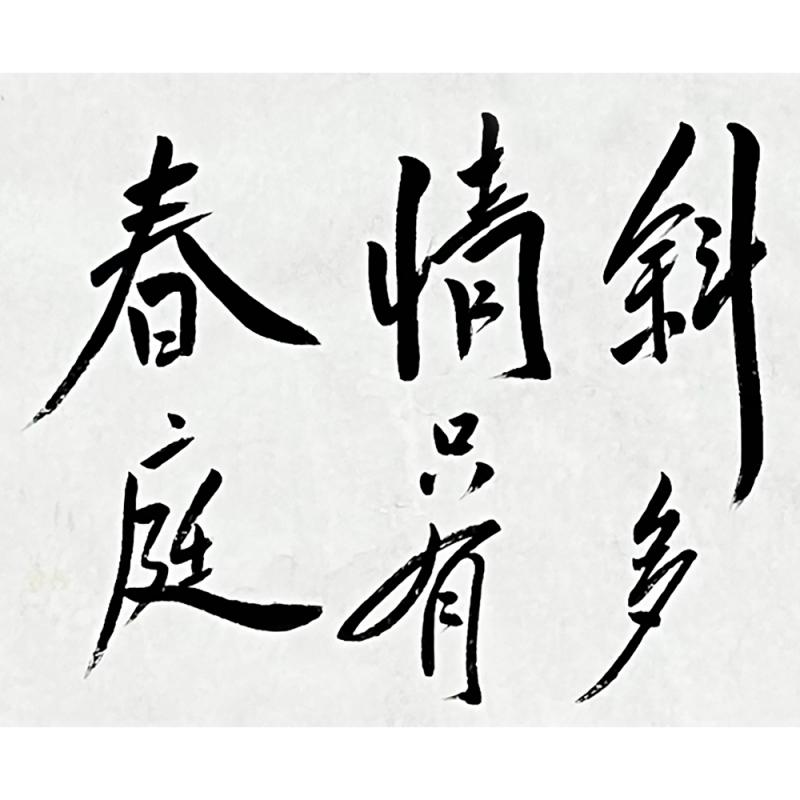 斜多
情只有
春庭